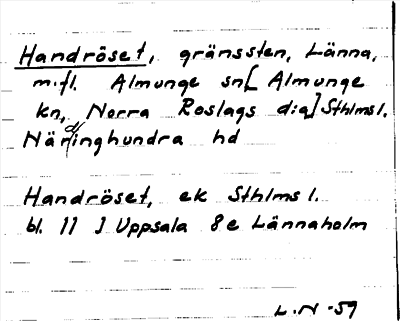 Handröset, gränssten, Länna,
m.fl. Almunge sn[Almunge
kn, Norra Roslags dia] Sthlms l.
Närdinghundra hd
Handröset, ek Sthlms l.
bl. 11 I Uppsala 8e Lännaholm
L.N -59